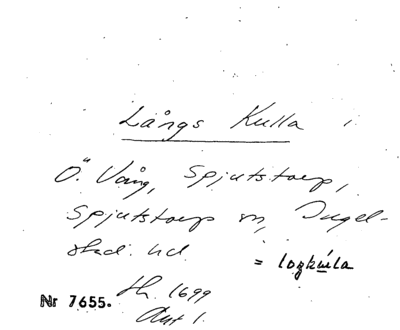 Långs Kulla
Ö. Vång, Spjutstorp,
Spjutstorp sn, Ingel-
stad. hd.
= logkúla
1699
Nr 7655.
Akt 1.